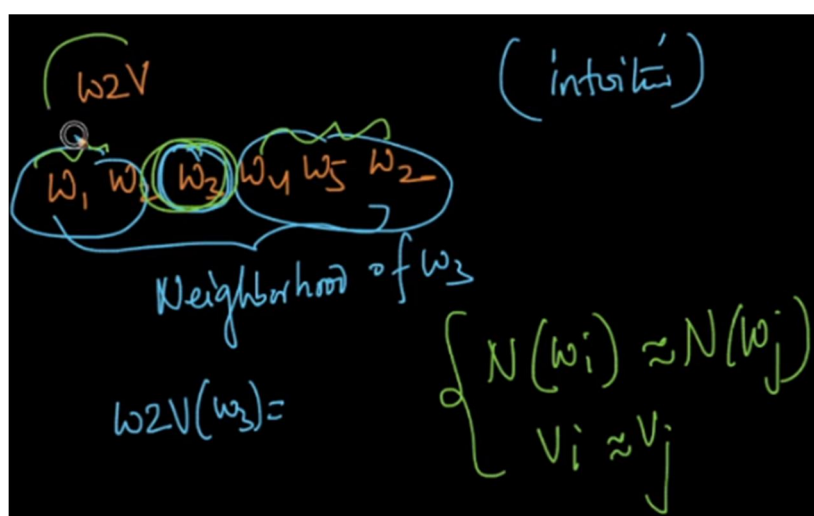 W2V
(intuition)
w₁ w₂ w₃ w₄ w₅ w₂
Neighborhood of w₃
N(wi) ≈ N(wj)
w2V(w₃)=
vi ≈ vj